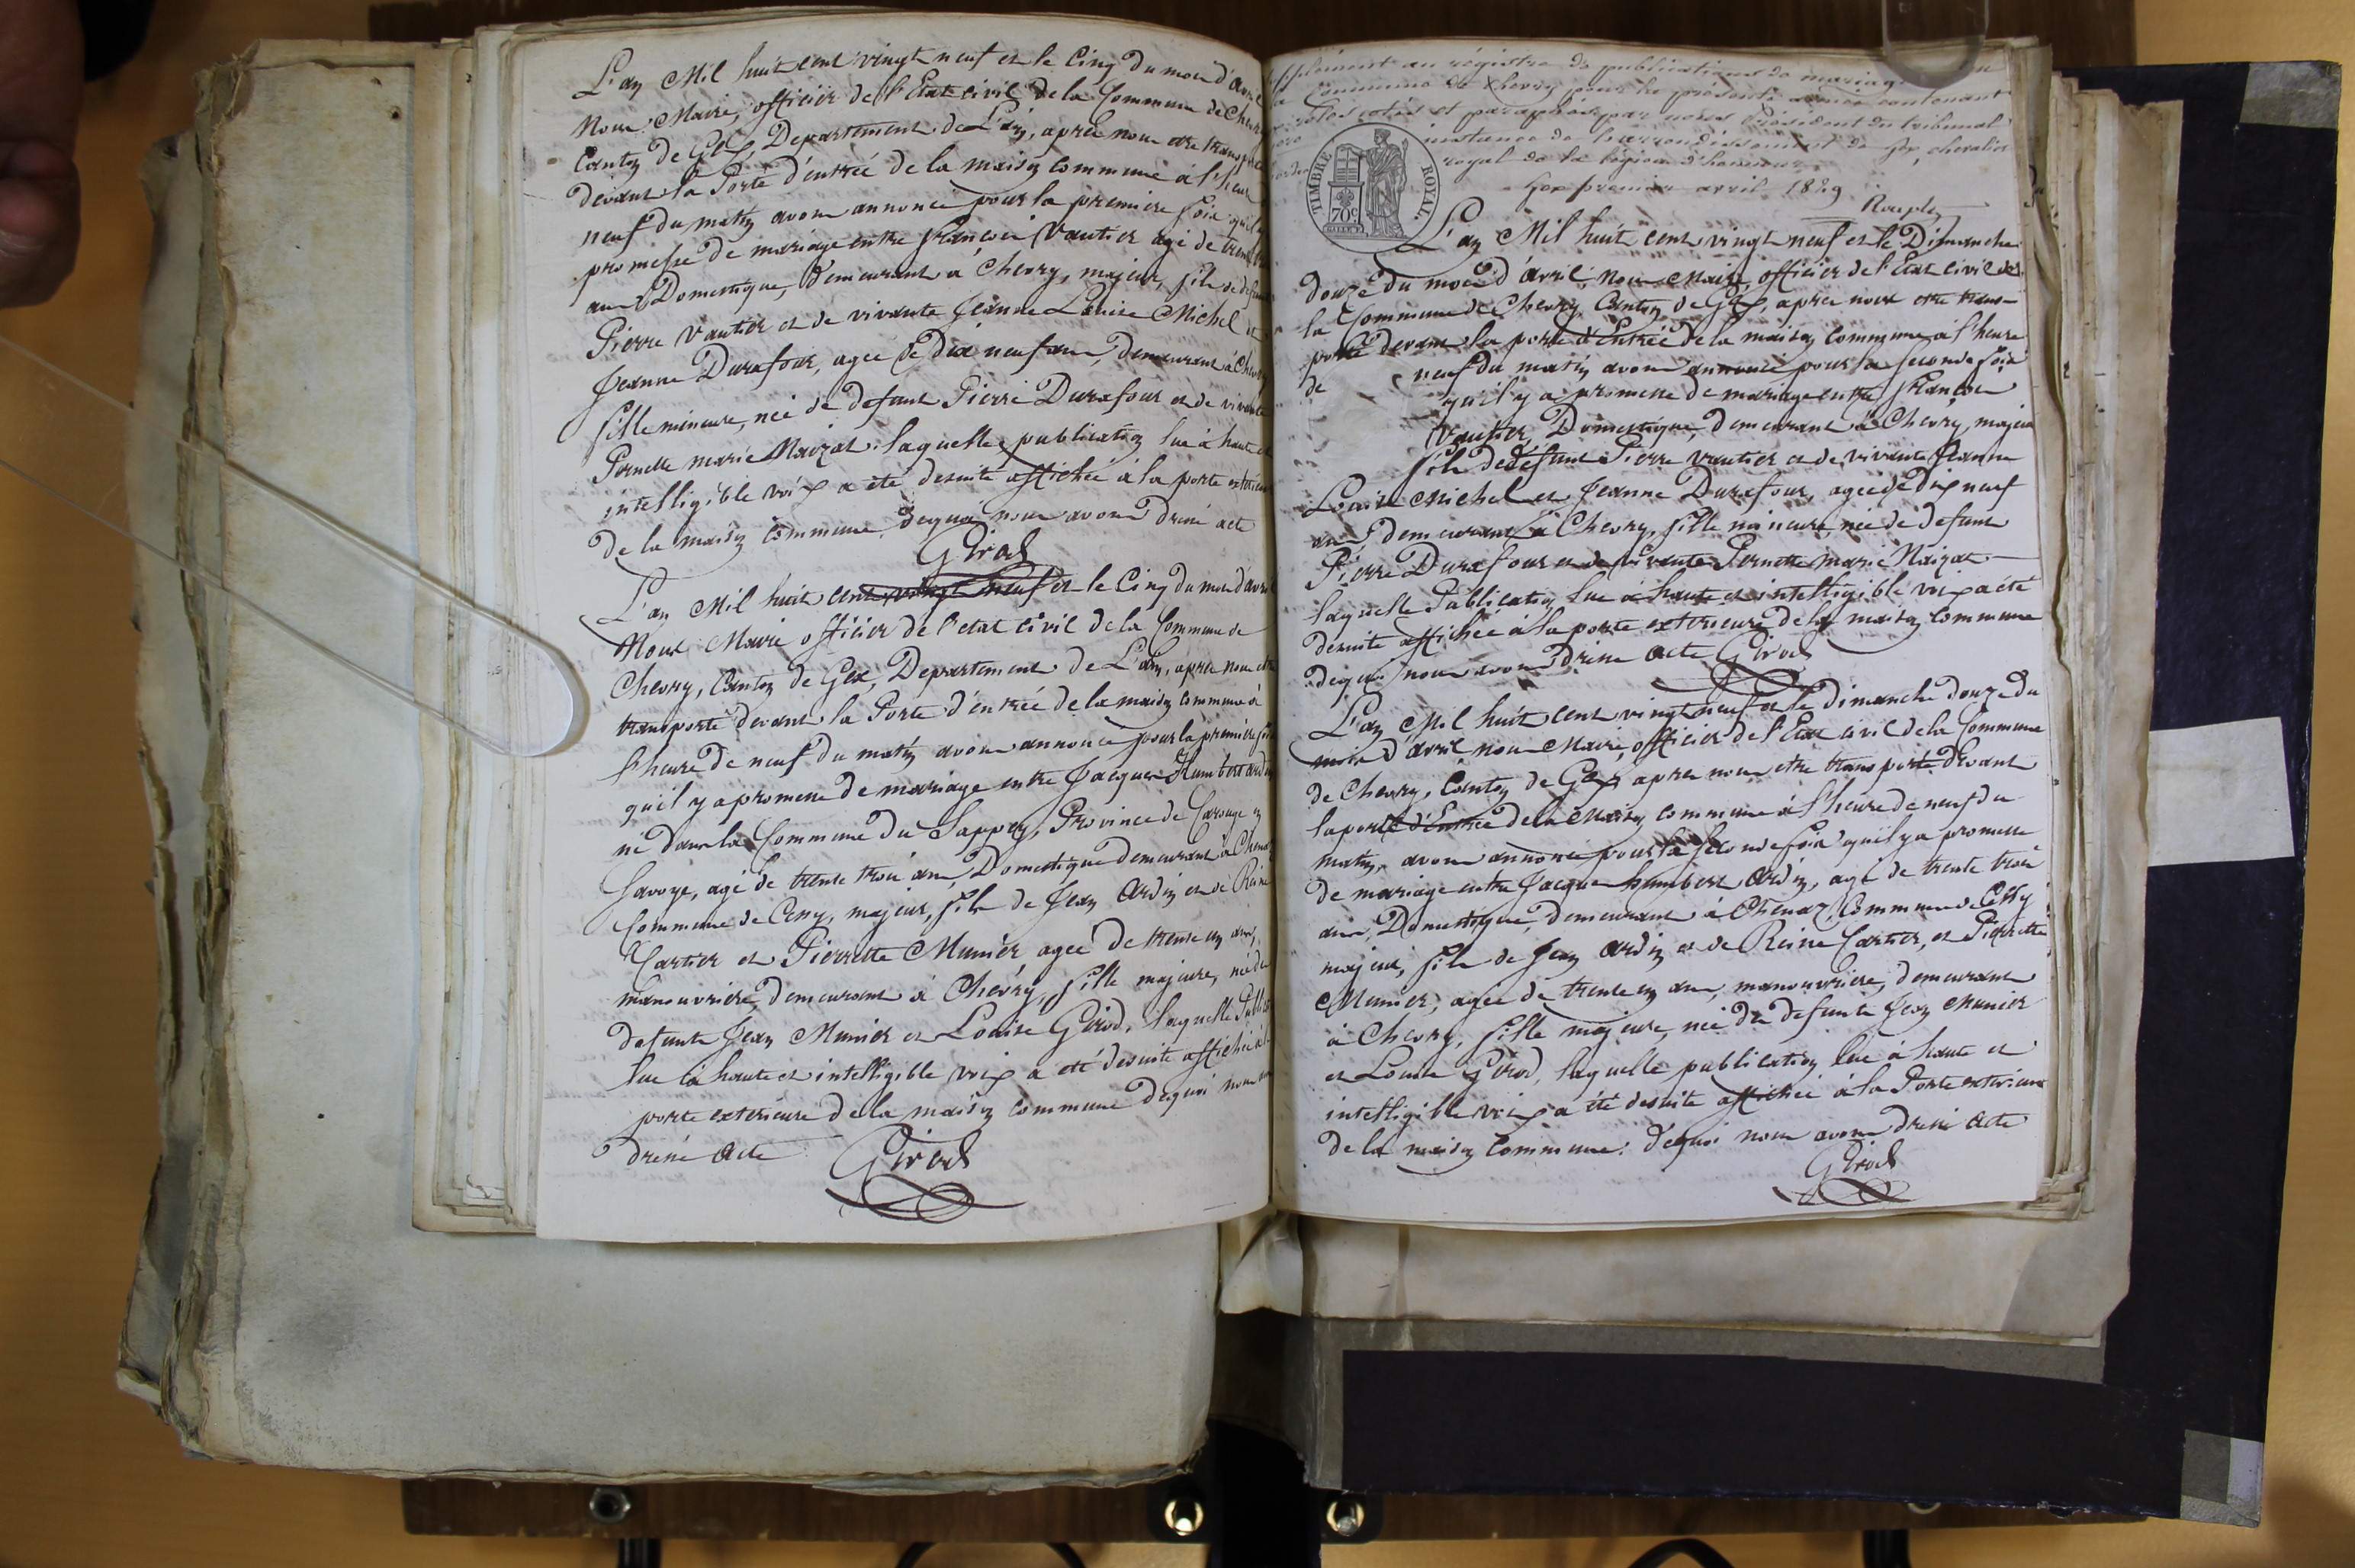 L'an Mil huit cent vingt neuf et le Cinq du mois d'avril
Nous Maire, officier de l'Etat civil de la Commune de Chevry
Canton de Gex, Departement de L'ain, après nous etre transporté
devant la Porte d'entrée de la maison commune à l'heure
neuf du matin avons annoncé pour la premiere fois qu'il y
promesse de mariage entre françois Vautier agé de trente
ans Domestique, demeurant à Chevry, majeur, fils de defunt
Pierre Vautier et de vivante Jeanne Louise Michel et
Jeanne Durafour, agée de dix neuf ans, demeurant à Chevry
fille mineure, née de defunt Pierre Durafour et de vivante
Pernette marie Maizat. laquelle publication lue à haute et
intelligible voix a été desuite affichée à la porte exterieure
de la maison Commune dequoi nous avons dréssé acte
Girod
L'an Mil huit cent vingt neuf et le Cinq du mois d'avril
Nous Maire officier de l'etat civil de la Commune de
Chevry, Canton de Gex, Departement de L'ain, après nous etre
transporté devant la Porte d'entrée de la maison commune à
l'heure de neuf du matin avons annoncé pour la premiere fois
qu'il y a promesse de mariage entre Jacques Humbert ardin
né dans la Commune du Sappey, Province de Carouge en
Savoye, agé de trente trois ans, Domestique demeurant à Chenaz
Commune de Cessy, majeur, fils de Jean Ardin et de Reine
Cartier et Pierrette Munier agée de trente un ans,
manouvriere, demeurant à Chévry, fille majeure, née de
defunts Jean Munier et Louise Girod, laquelle Publication
lue à haute et intelligible voix a eté desuite affichée à la
porte exterieure de la maison commune dequoi nous avons
dréssé Acte Girod
Supplément au régistre de publications de mariage
la commune de Chevry pour la présente année contenant
rôles cotés et paraphés par nous Président du tribunal
instance de l'arrondissement de Gex, chevalier
royal de la légion d'honneur
Gex premier avril 1829
TIMBRE ROYAL.
70c
L'an Mil huit cent vingt neuf et le Dimanche
douze du mois d'avril, nous Maire, officier de l'Etat civil de
la Commune de Chevry Canton de Gex, après nous etre trans-
porté devant la porte d'Entrée de la maison commune à l'heure
de neuf du matin avons annoncé pour la seconde fois
qu'il y a promesse de mariage entre François
Vautier, Domestique, demeurant à Chevry, majeur
fils de défunt Pierre Vautier et de vivante Jeanne
Louise Michel et Jeanne Durafour, agée de dix neuf
ans demeurant à Chevry, fille mineure, née de defunt
Pierre Durafour et de vivante Pernette marie Maizat
laquelle Publication lue à haute et intelligible voix a été
desuite affichée à la porte exterieure de la maison commune
dequoi nous avons dréssé Acte Girod
L'an Mil huit cent vingt neuf et le dimanche douze du
mois d'avril nous Maire, officier de l'Etat civil de la Commune
de Chevry, Canton de Gex, après nous etre transporté devant
la porte d'Entrée de la Maison commune à l'heure de neuf du
matin, avons annoncé pour la seconde fois qu'il y a promesse
de mariage entre Jacques humbert Ardin, agé de trente trois
ans, Domestique, demeurant à Chenaz Commune de Cessy
majeur, fils de Jean Ardin et de Reine Cartier, et Pierrette
Munier, agée de trente un ans, manouvriere, demeurant
à Chevry, fille majeure, née de defunts Jean Munier
et Louise Girod, laquelle publication lue à haute et
intelligible voix a été desuite affichée à la Porte exterieure
de la maison Commune. dequoi nous avons dréssé Acte
Girod